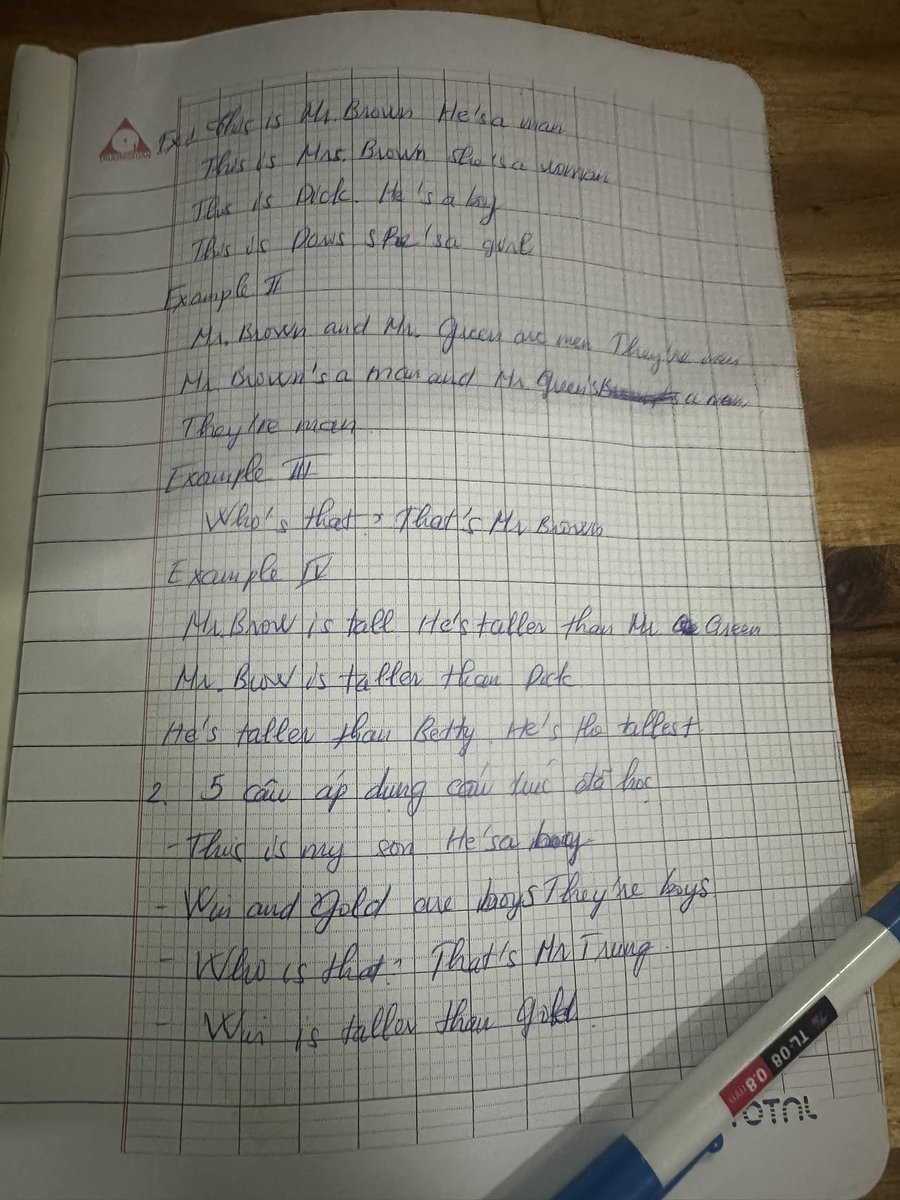 Ex1 This is Mr. Brown He's a man
This is Mrs. Brown She is a woman
This is Dick. He's a boy
This is Doris she's a girl
Example II
Mr. Brown and Mr. Green are men They're men
Mr Brown's a man and Mr Green's a man
They're man
Example III
Who's that? That's Mr Brown
Example IV
Mr. Brow is tall He's taller than Mr Green
Mr. Brow is taller than Dick
He's taller than Betty. He's the tallest
2. 5 câu áp dụng cấu trúc đã học
- This is my son He's a boy
- Win and Gold are boys They're boys
- Who is that? That's Mr Trung.
- Win is taller than Gold.
TL-08
0.8mm
TOTAL